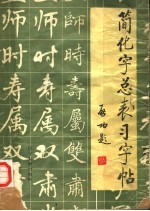 简化字总表习字帖
启功题
師時壽屬雙肅
师时寿属双肃
师时寿属双